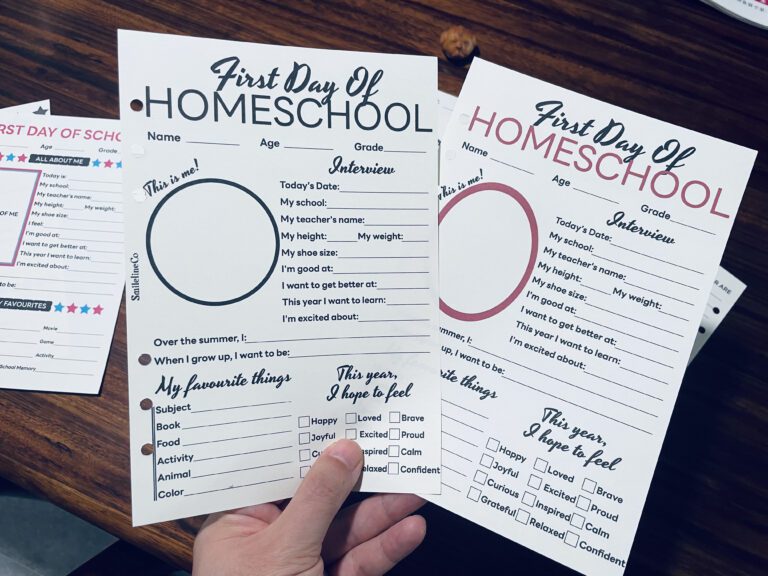 First Day Of
HOMESCHOOL
Name Age Grade
This is me!
Interview
Today's Date:
My school:
My teacher's name:
My height: My weight:
My shoe size:
I'm good at:
I want to get better at:
This year I want to learn:
I'm excited about:
SmilelineCo
Over the summer, I:
When I grow up, I want to be:
My favourite things
Subject
Book
Food
Activity
Animal
Color
This year,
I hope to feel
Happy Loved Brave
Joyful Excited Proud
Calm
Confident
First Day Of
HOMESCHOOL
Name Age Grade
is me!
Interview
Today's Date:
My school:
My teacher's name:
My height: My weight:
My shoe size:
I'm good at:
I want to get better at:
This year I want to learn:
I'm excited about:
summer, I:
up, I want to be:
things
This year,
I hope to feel
Happy Loved Brave
Joyful Excited Proud
Curious Inspired Calm
Grateful Relaxed Confident
RST DAY OF SCHO
Age Grade
ALL ABOUT ME
Today is:
My school:
My teacher's name:
My height: My weight:
My shoe size:
I feel:
I'm good at:
I want to get better at:
This year I want to learn:
I'm excited about:
OF ME
to be:
FAVOURITES
Movie
Game
Activity
School Memory
ARE